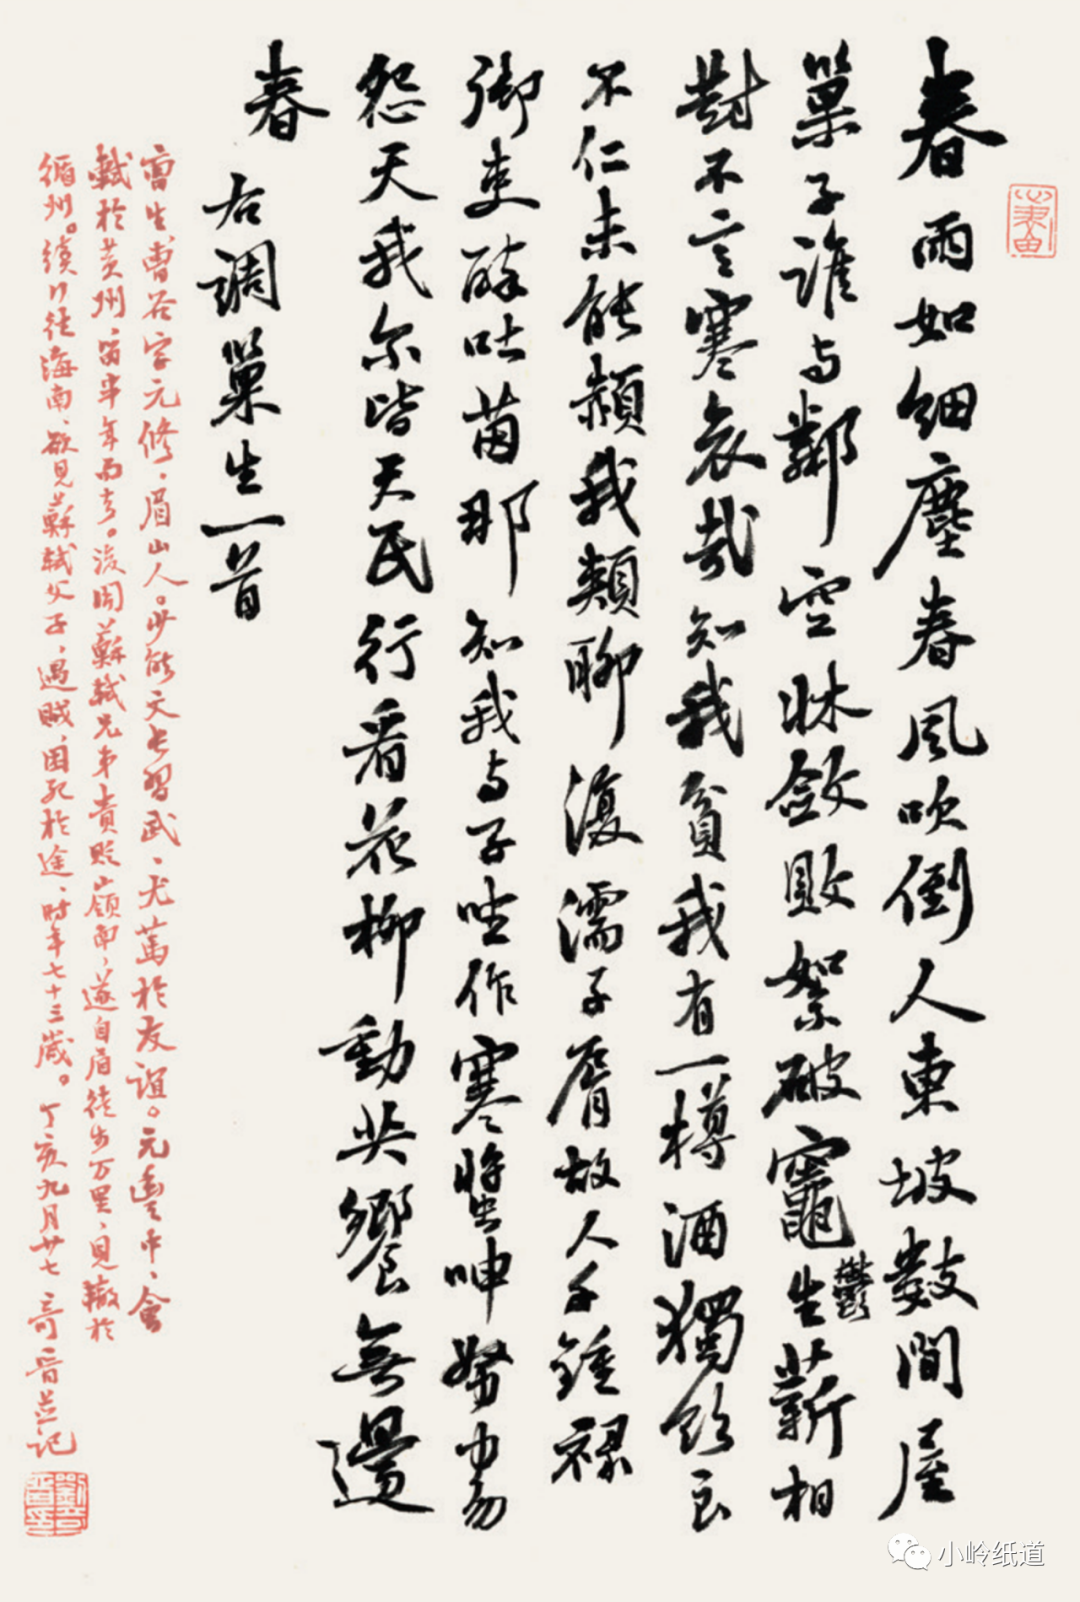 春雨如細塵春風吹倒人東坡數間屋
巢子誰與鄰空牀斂敗絮破竈鬱生薪相
對不言寒哀哉知我貧我有一樽酒獨飲良
不仁未能頳我頰聊復濡子脣故人千鍾祿
御吏醉吐茵那知我與子坐作寒蛩呻努力勿
怨天我尔皆天民行看花柳動共饗無邊
春
右調巢生一首
曹生、曹谷字元修、眉山人。少能文長習武、尤篤於友誼。元豐中、會
軾於黃州、留半年而去。後聞蘇軾兄弟責貶嶺南、遂自眉徒步万里、見轍於
循州。續行往海南、欲見蘇軾父子、遇賊、困死於途、時年七十三歲。丁亥九月廿七 奇晉並記
劉奇晉印
小岭纸道